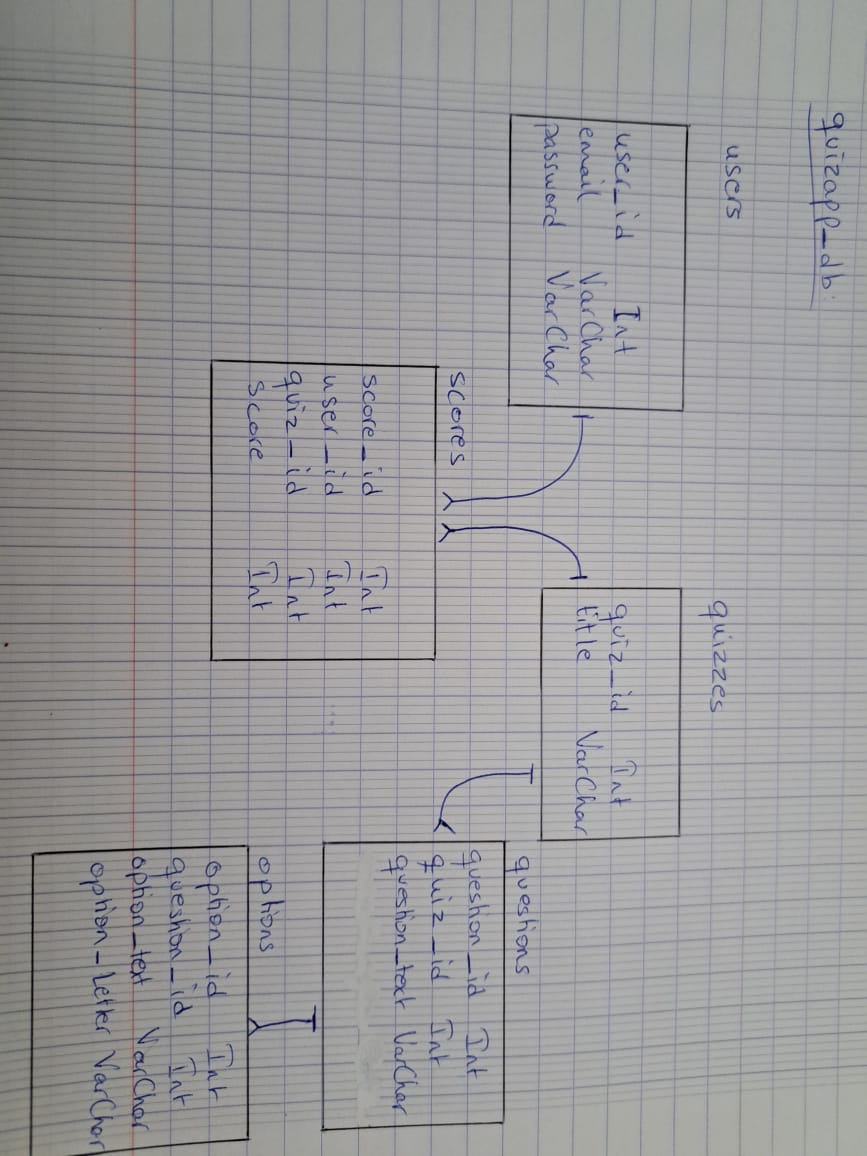 quizapp_db:
users
user_id Int
email VarChar
password VarChar
quizzes
quiz_id Int
title VarChar
scores
score_id Int
user_id Int
quiz_id Int
score Int
questions
question_id Int
quiz_id Int
question_text VarChar
options
option_id Int
question_id Int
option_text VarChar
option_Letter VarChar